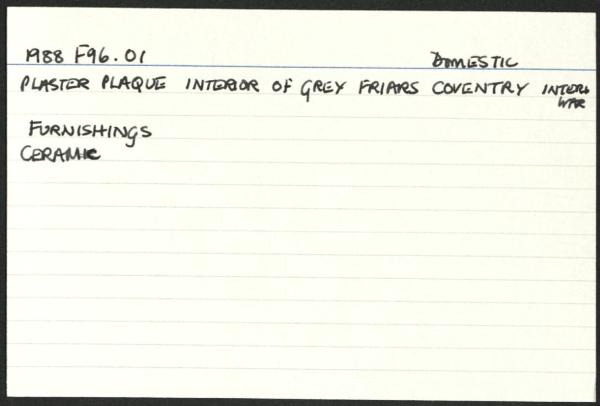 1988 F96.01 DOMESTIC
PLASTER PLAQUE INTERIOR OF GREY FRIARS COVENTRY INTER
WAR
FURNISHINGS
CERAMIC